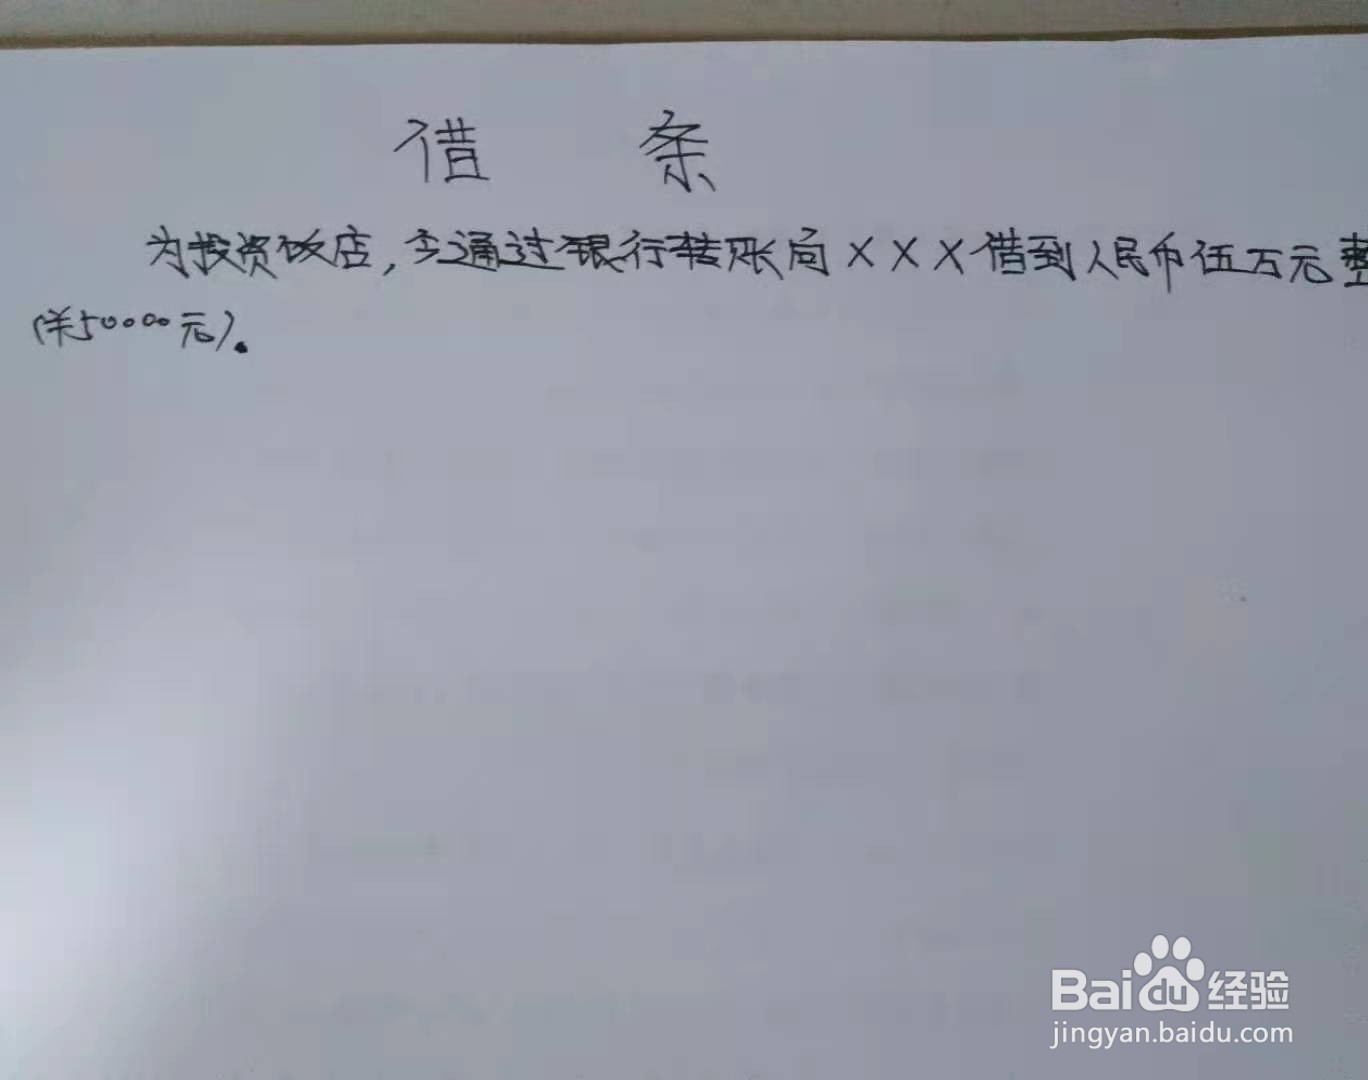 借 条
为投资饭店,今通过银行转账向×××借到人民币伍万元整
(¥50000元)。
Bai du 经验
jingyan.baidu.com